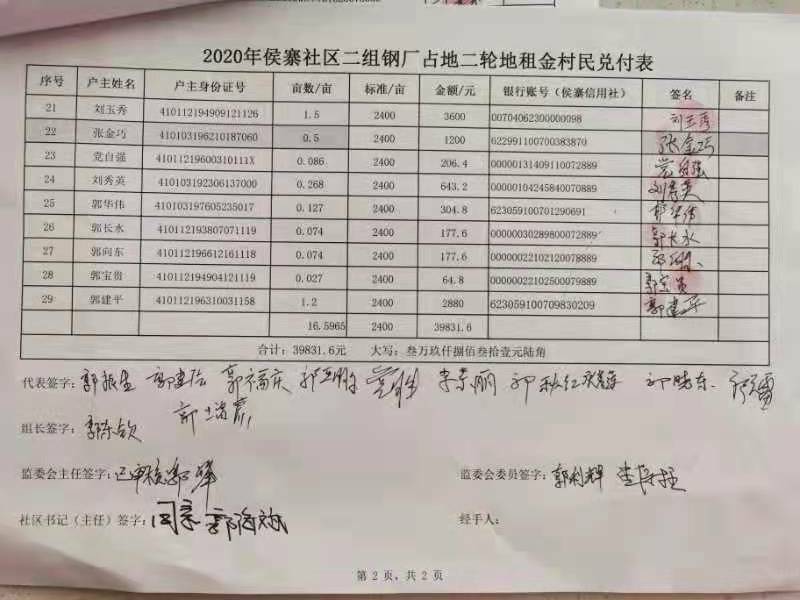 2020年侯寨社区二组钢厂占地二轮地租金村民兑付表
序号 户主姓名 户主身份证号 亩数/亩 标准/亩 金额/元 银行账号（侯寨信用社） 签名 备注
21 刘玉秀 410112194909121126 1.5 2400 3600 00704062300000098 刘玉秀
22 张金巧 410103196210187060 0.5 2400 1200 622991100700383870 张金巧
23 党自强 41011219600310111X 0.086 2400 206.4 00000131409110072889 党自强
24 刘秀英 410103192306137000 0.268 2400 643.2 00000104245840070889 刘秀英
25 郭华伟 410103197605235017 0.127 2400 304.8 623059100701290691 郭华伟
26 郭长水 410112193807071119 0.074 2400 177.6 00000030289800072889 郭长水
27 郭向东 410112196612161118 0.074 2400 177.6 00000022102120078889
28 郭宝贵 410112194904121119 0.027 2400 64.8 00000022102500079889 郭宝贵
29 郭建平 410112196310031158 1.2 2400 2880 623059100709830209 郭建平
16.5965 2400 39831.6
合计：39831.6元 大写：叁万玖仟捌佰叁拾壹元陆角
代表签字：
组长签字：
监委会主任签字：已审核 监委会委员签字：郭利辉
社区书记（主任）签字：同意 经手人：
第 2 页，共 2 页